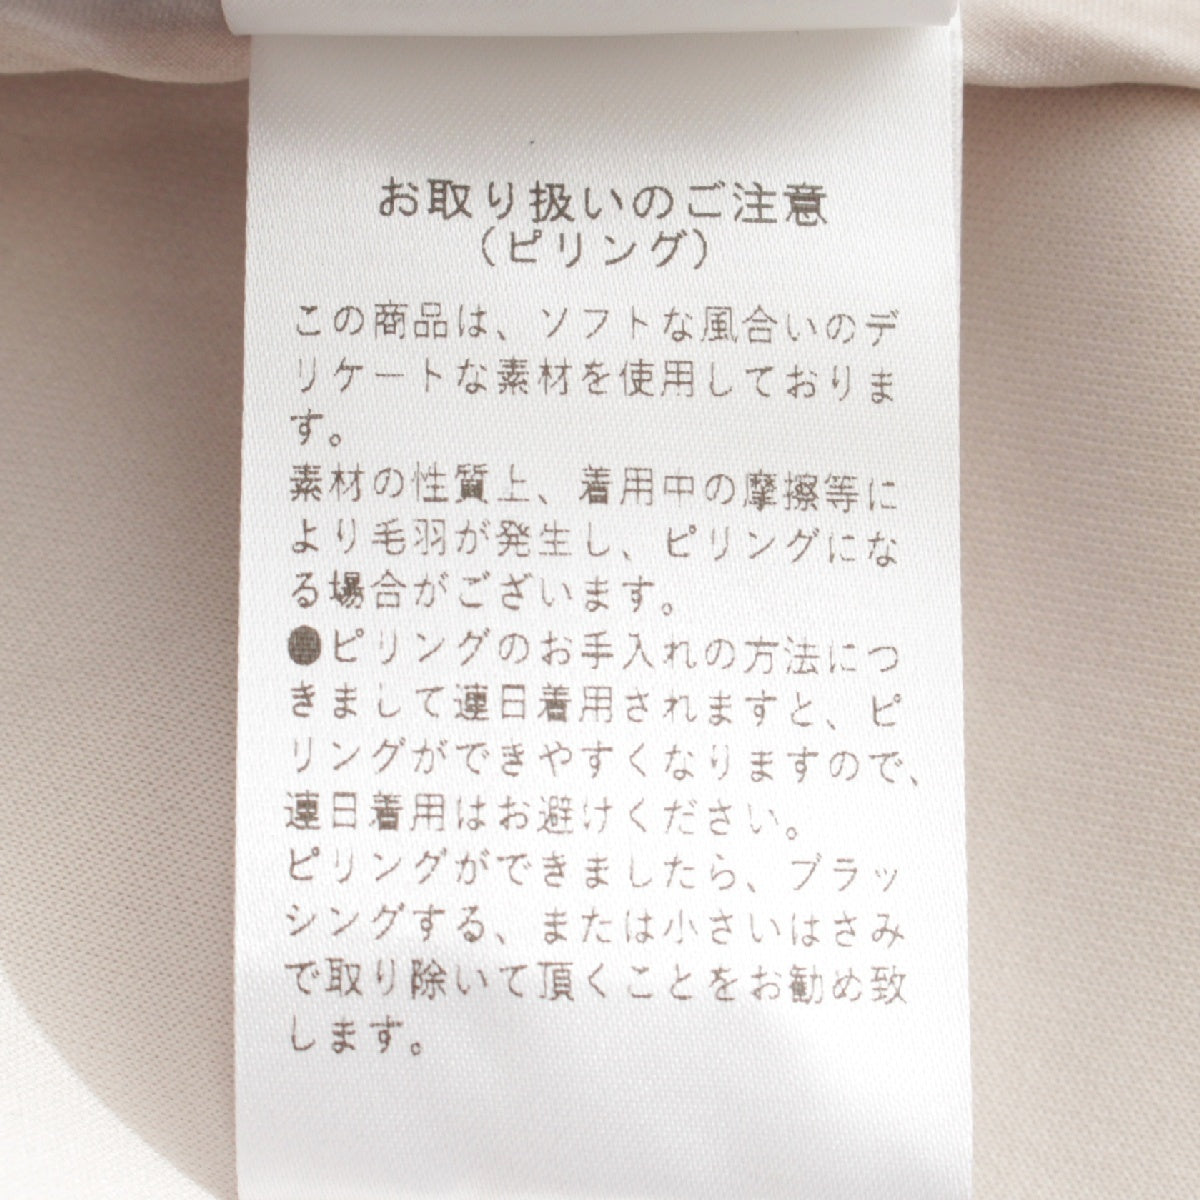 お取り扱いのご注意
（ピリング）
この商品は、ソフトな風合いのデ
リケートな素材を使用しておりま
す。
素材の性質上、着用中の摩擦等に
より毛羽が発生し、ピリングにな
る場合がございます。
●ピリングのお手入れの方法につ
きまして連日着用されますと、ピ
リングができやすくなりますので、
連日着用はお避けください。
ピリングができましたら、ブラッ
シングする、または小さいはさみ
で取り除いて頂くことをお勧め致
します。